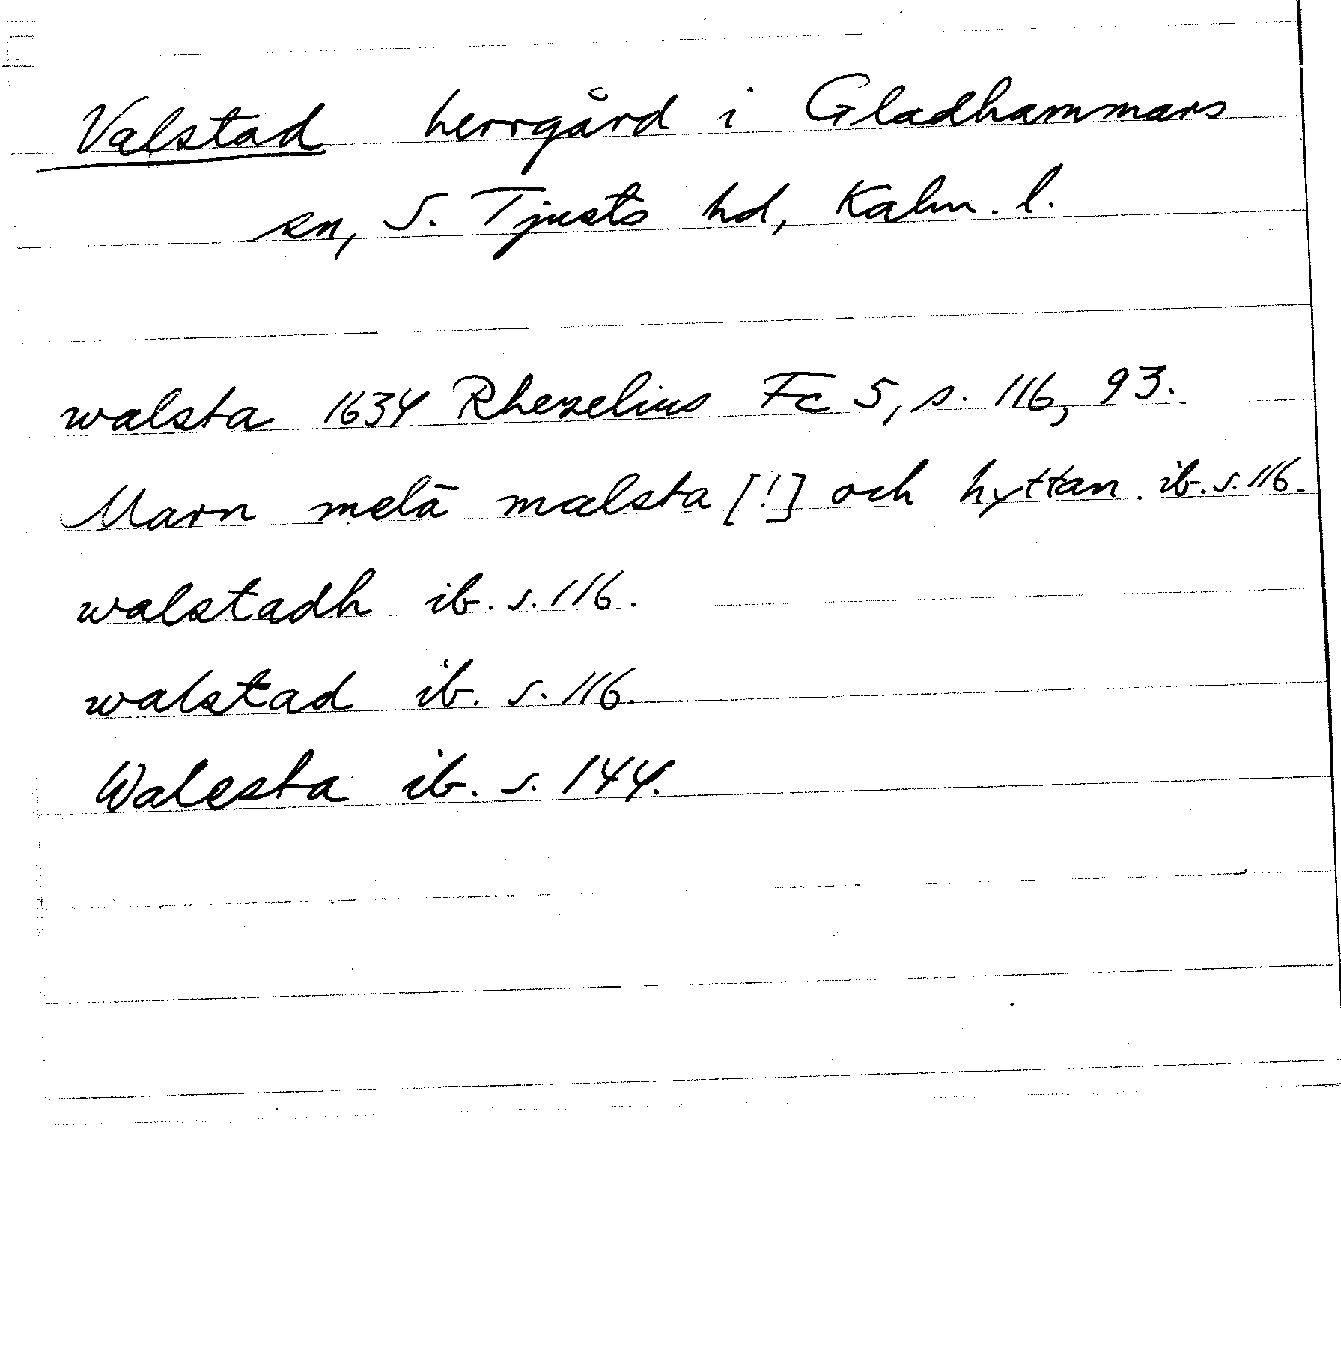 Valstad herrgård i Gladhammars
sn, S. Tjusts hd, Kalm. l.
walsta 1634 Rhezelius Fc 5, s. 116, 93.
Marn melā malsta [!] och hyttan. ib. s. 116.
walstadh ib. s. 116.
walstad ib. s. 116.
Walesta ib. s. 144.